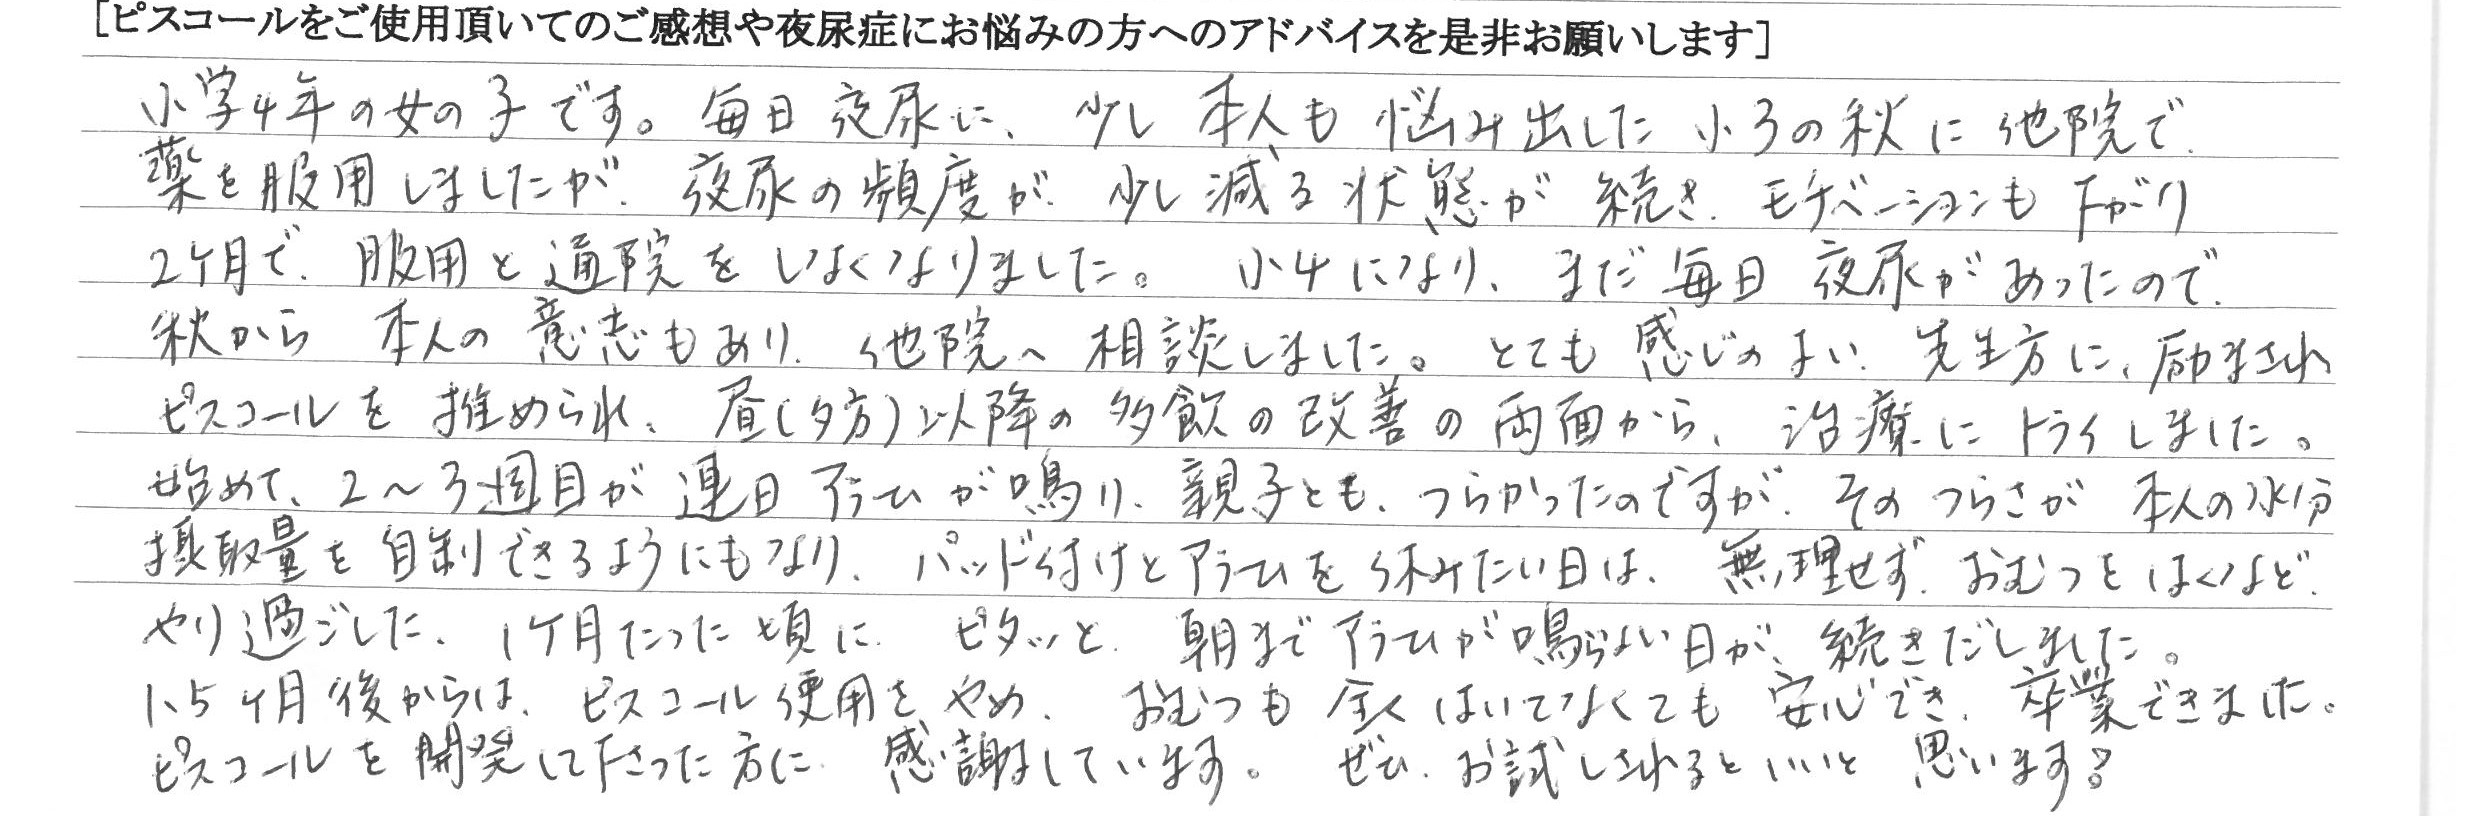 [ピスコールをご使用頂いてのご感想や夜尿症にお悩みの方へのアドバイスを是非お願いします]
小学4年の女の子です。毎日夜尿に、少し本人も悩み出した小3の秋に他院で、
薬を服用しましたが、夜尿の頻度が、少し減る状態が続き、モチベーションも下がり
2ケ月で、服用と通院をしなくなりました。小4になり、まだ毎日夜尿があったので、
秋から本人の意志もあり、他院へ相談しました。とても感じのよい、先生方に、励まされ
ピスコールを推められ、昼(夕方)以降の多飲の改善の両面から、治療にトライしました。
始めて、2〜3週目が連日アラームが鳴り、親子とも、つらかったのですが、そのつらさが本人の水分
摂取量を自制できるようにもなり、パッド付けとアラームを休みたい日は、無理せず、おむつをはくなど、
やり過ごした、1ケ月たった頃に、ピタッと、朝までアラームが鳴らない日が、続きだしました。
1.5ケ月後からは、ピスコール使用をやめ、おむつも全くはいてなくても安心でき、卒業できました。
ピスコールを開発して下さった方に、感謝をしています。ぜひ、お試しされるといいと思います。